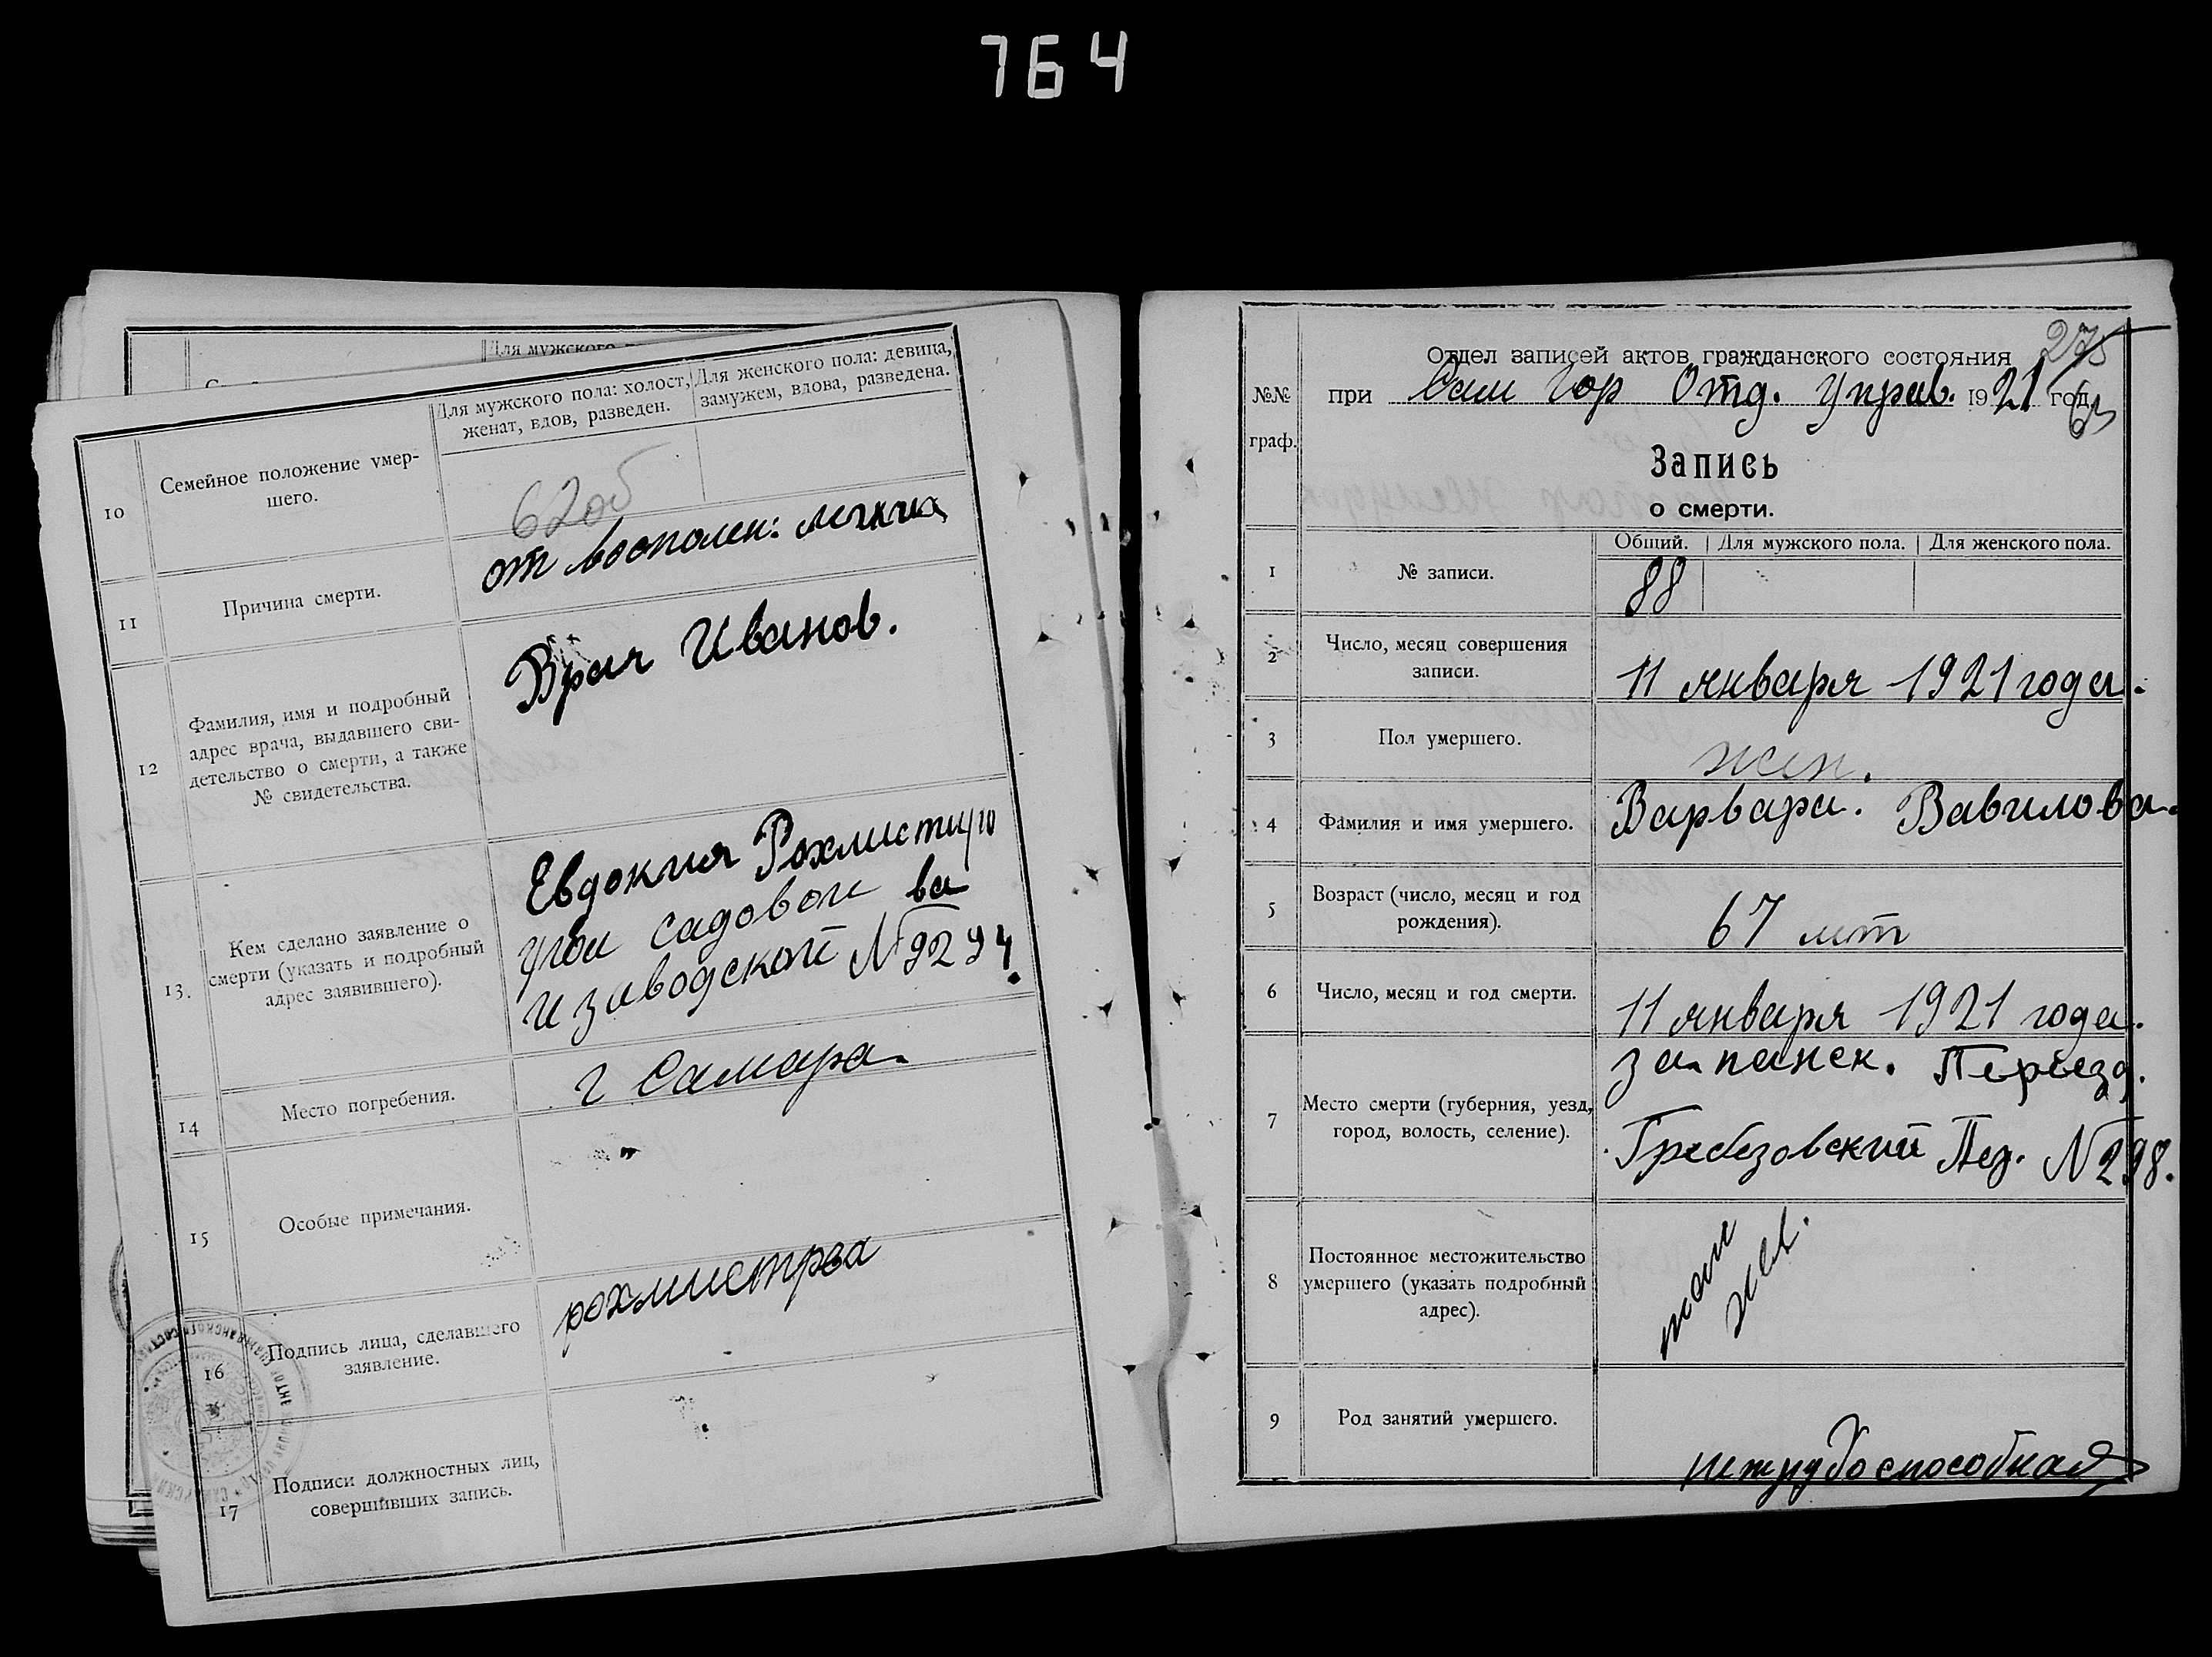 764
Для мужского
Для мужского пола: холост, женат, вдов, разведен.
Для женского пола: девица, замужем, вдова, разведена.
10
Семейное положение умер-
шего.
62об
11
Причина смерти.
от восполен: легких
12
Фамилия, имя и подробный
адрес врача, выдавшего сви-
детельство о смерти, а также
№ свидетельства.
Врач Иванов.
13.
Кем сделано заявление о
смерти (указать и подробный
адрес заявившего).
Евдокия Рохмистро
ва
угол садовой
и заводской №
14
Место погребения.
г Самара.
15
Особые примечания.
16
Подпись лица, сделавшего
заявление.
рохмистрва
17
Подписи должностных лиц,
совершивших запись.
275
Отдел записей актов гражданского состояния
№№
граф.
при Сам Гор Отд. Управ. 1921 год
63
Запись
о смерти.
Общий. Для мужского пола. Для женского пола.
1
№ записи.
88
2
Число, месяц совершения
записи.
11 января 1921 года.
3
Пол умершего.
жен.
4
Фамилия и имя умершего.
Варвара. Вавилова.
5
Возраст (число, месяц и год
рождения).
67 лет
6
Число, месяц и год смерти.
11 января 1921 года.
7
Место смерти (губерния, уезд,
город, волость, селение).
за панск. Переезд.
Пер. № 298.
8
Постоянное местожительство
умершего (указать подробный
адрес).
9
Род занятий умершего.
нетрудоспособная